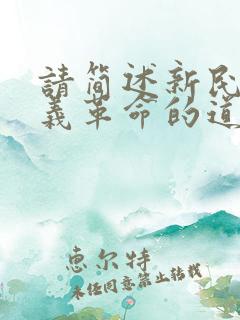 請简述新民
義革命的道
恵尔特
未经同意禁止转载